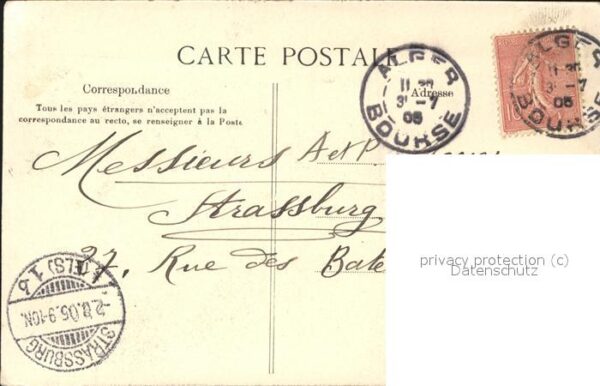 CARTE POSTALE
Correspondance
Adresse
Tous les pays étrangers n'acceptent pas la
correspondance au recto, se renseigner à la Poste
ALGER
11 30
31 -7
05
BOURSE
ALGER
11 30
3 -7
05
BOURSE
Messieurs A et P
Strassburg
27, Rue des Bate
privacy protection (c)
Datenschutz
STRASSBURG
(ELS) 1
-2.8.05.9-10N.